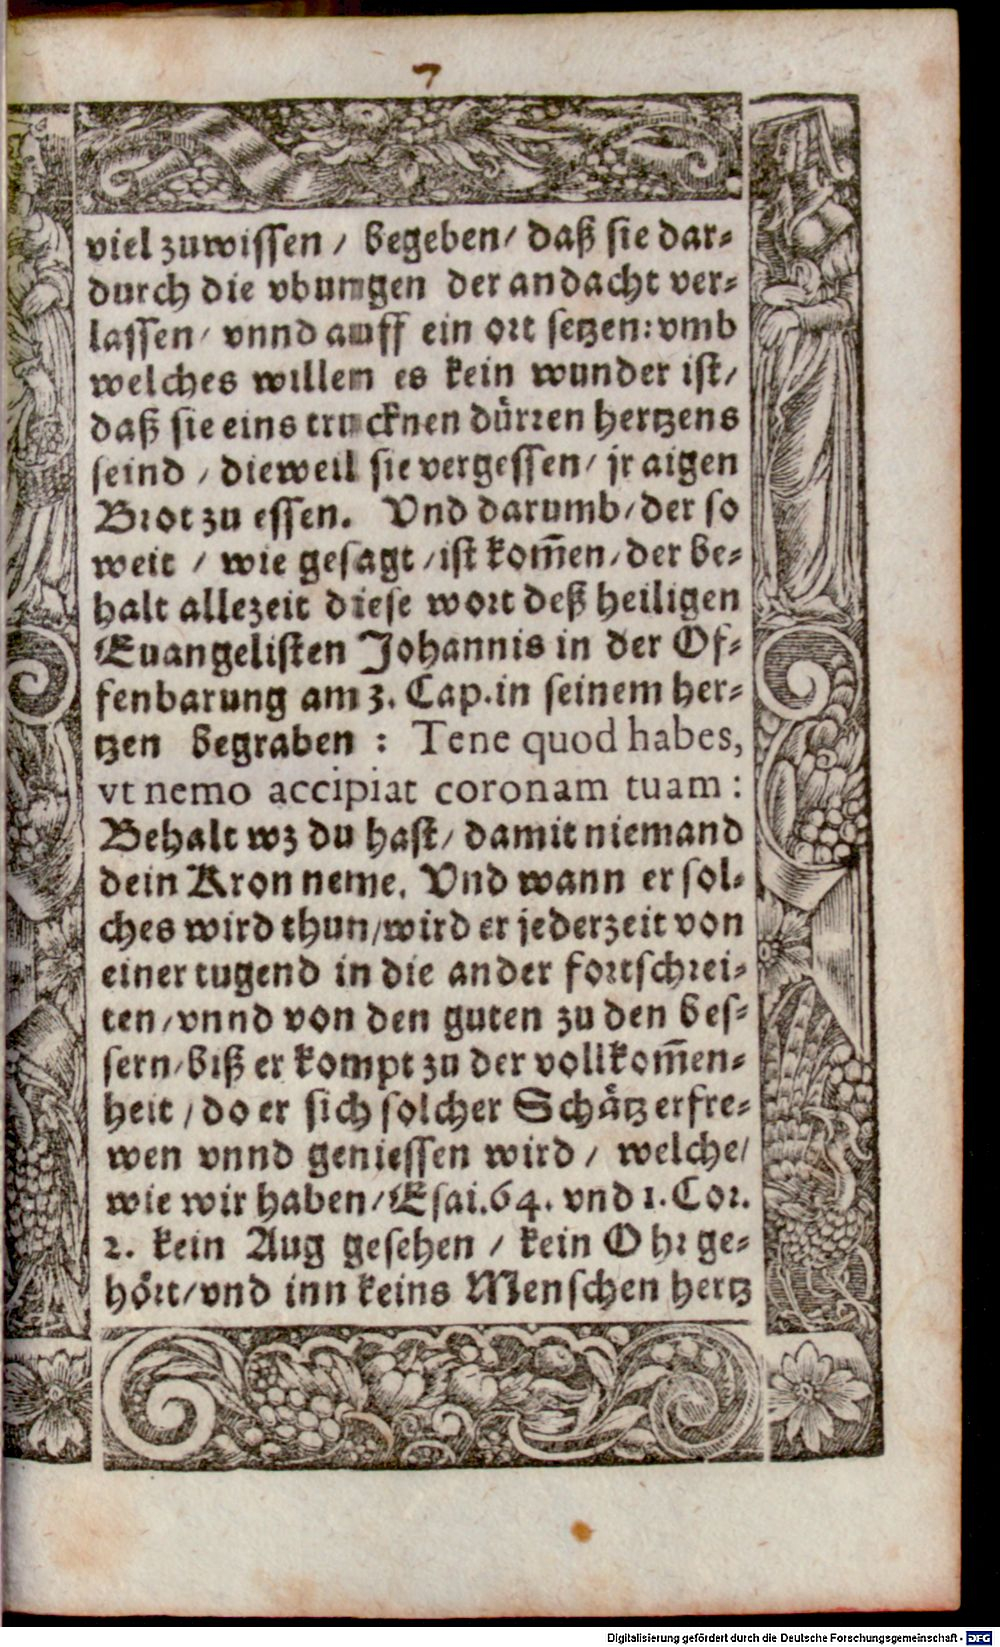 7
viel zuwissen / begeben / daß sie dar-
durch die vbungen der andacht ver-
lassen / vnnd auff ein ort setzen: vmb
welches willen es kein wunder ist /
daß sie eins trucknen dürren hertzens
seind / dieweil sie vergessen / jr aigen
Brot zu essen. Vnd darumb / der so
weit / wie gesagt / ist kom̄en / der be-
halt allezeit diese wort deß heiligen
Euangelisten Johannis in der Of-
fenbarung am 3. Cap. in seinem her-
tzen begraben : Tene quod habes,
vt nemo accipiat coronam tuam :
Behalt wz du hast / damit niemand
dein Kron neme. Vnd wann er sol-
ches wird thun / wird er jederzeit von
einer tugend in die ander fortschrei-
ten / vnnd von den guten zu den bes-
sern / biß er kompt zu der vollkom̄en-
heit / do er sich solcher Schätz erfre-
wen vnnd geniessen wird / welche /
wie wir haben / Esai. 64. vnd 1. Cor.
2. kein Aug gesehen / kein Ohr ge-
hört / vnd inn keins Menschen hertz
Digitalisierung gefördert durch die Deutsche Forschungsgemeinschaft - DFG